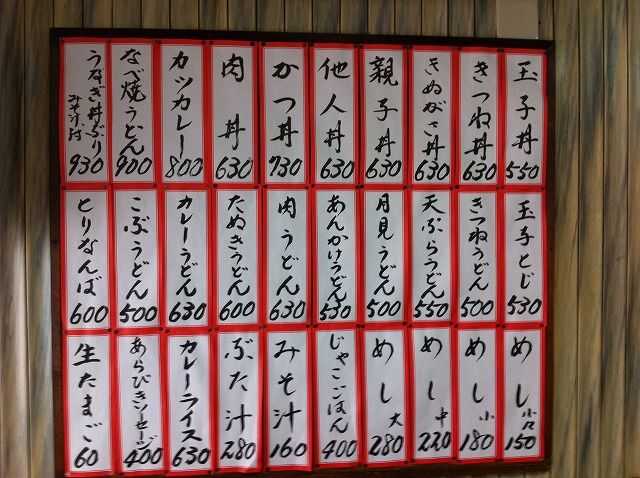 玉子丼 550
きつね丼 630
きぬがさ丼 630
親子丼 630
他人丼 630
かつ丼 730
肉丼 630
カツカレー 800
なべ焼うどん 900
うなぎ丼ぶり みそ汁付 930
玉子とじ 530
きつねうどん 500
天ぷらうどん 550
月見うどん 500
あんかけうどん 530
肉うどん 630
たぬきうどん 600
カレーうどん 630
こぶうどん 500
とりなんば 600
めし 小々 150
めし 小 180
めし 中 220
めし 大 280
じゃこごはん 400
みそ汁 160
ぶた汁 280
カレーライス 630
あらびきソーセージ 400
生たまご 60